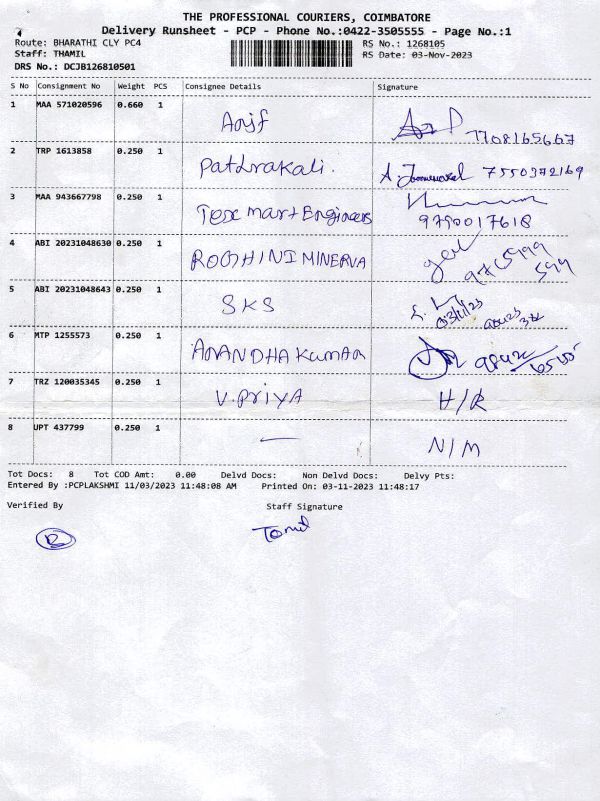 THE PROFESSIONAL COURIERS, COIMBATORE
Delivery Runsheet - PCP - Phone No.:0422-3505555 - Page No.:1
Route: BHARATHI CLY PC4 RS No.: 1268105
Staff: THAMIL RS Date: 03-Nov-2023
DRS No.: DCJB126810501
S No Consignment No Weight PCS Consignee Details Signature
1 MAA 571020596 0.660 1 Arif 7708165667
2 TRP 1613858 0.250 1 Pathrakali. 7550372169
3 MAA 943667798 0.250 1 Tex mart Engineers 9790017618
4 ABI 20231048630 0.250 1 ROOHINI MINERVA
5 ABI 20231048643 0.250 1 SKS 03/11/23
6 MTP 1255573 0.250 1 ANANDHA Kumar
7 TRZ 120035345 0.250 1 V.PRIYA H/R
8 UPT 437799 0.250 1 — N/M
Tot Docs: 8 Tot COD Amt: 0.00 Delvd Docs: Non Delvd Docs: Delvy Pts:
Entered By :PCPLAKSHMI 11/03/2023 11:48:08 AM Printed On: 03-11-2023 11:48:17
Verified By Staff Signature
R Tamil